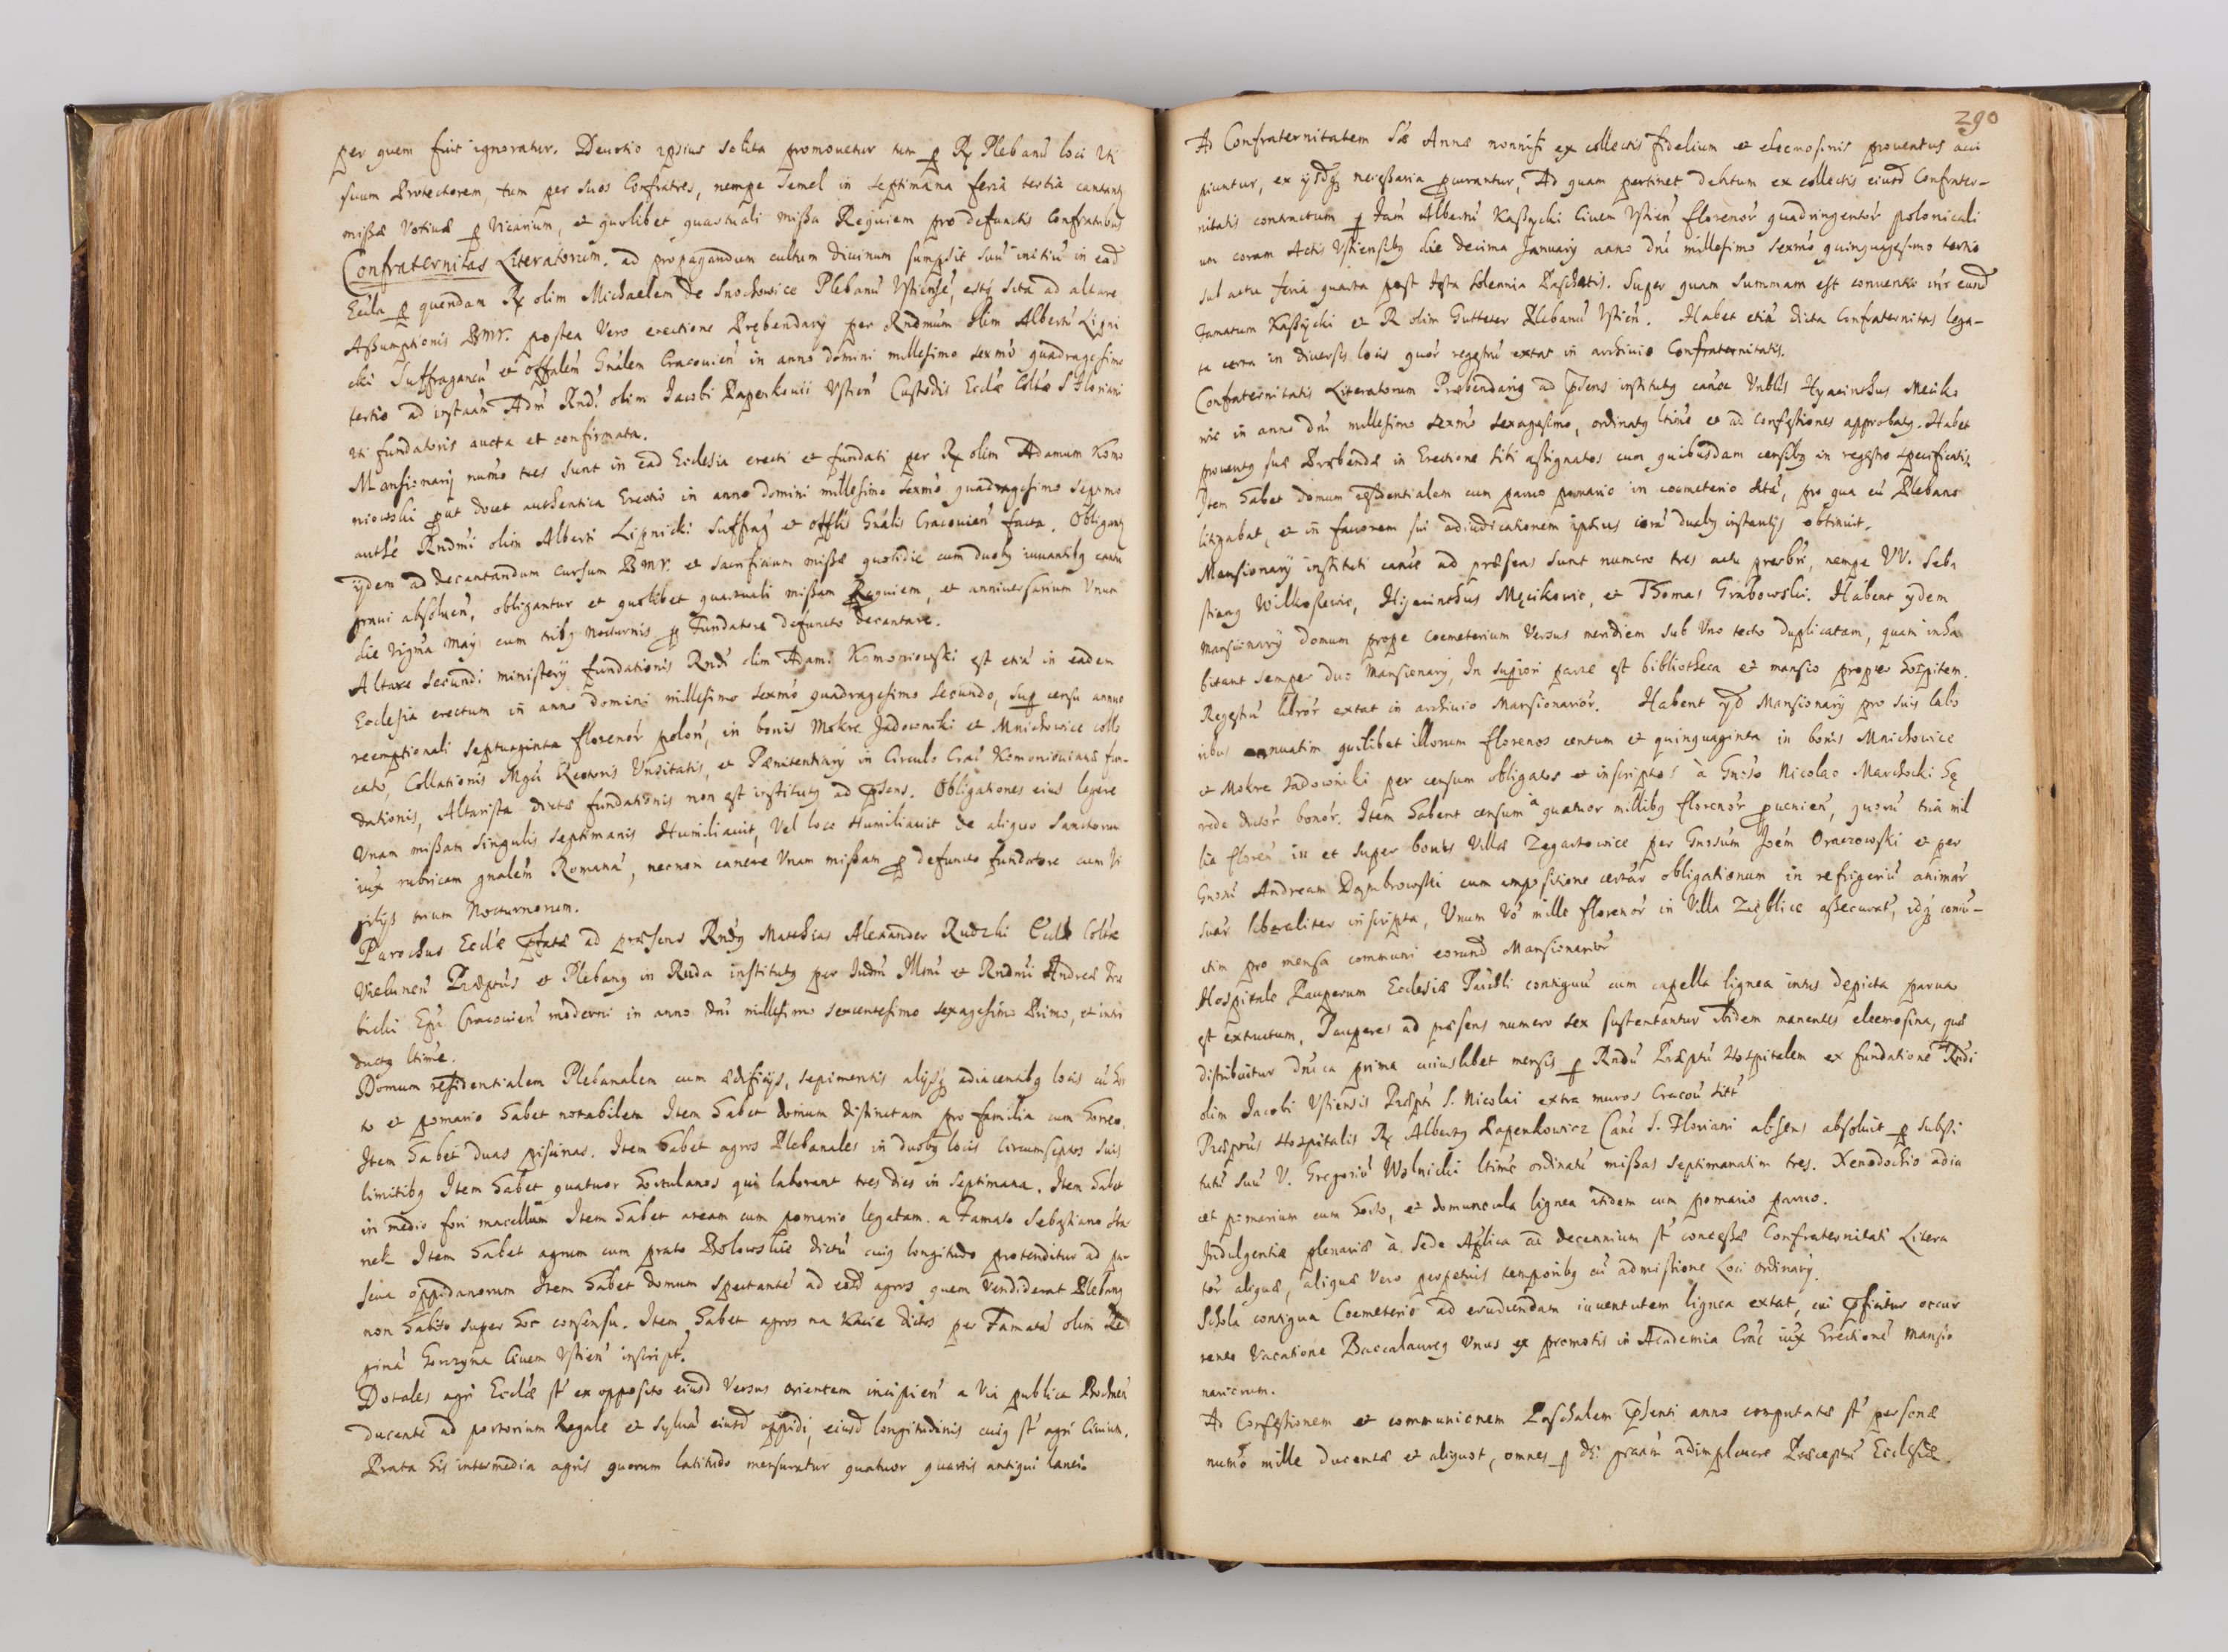 per quem fuit ignoratur. Deuotio ipsius solita promouetur tum p Rx Plebanu loci Uti
suum Protectorem, tum per suos Confratres, nempe semel in septimana feria tertia cantant
missæ Votiuæ p Vicarium, et quolibet quartuali missa Requiem pro defunctis Confratribus
Confraternitas Literatorum. ad propagandum cultum diuinum sumpsit suu initiu in ead
Eccla p quendam Rx olim Michaelem de Snochowice Plebanu Ustiense, estq sita ad altare
Assumptionis BMV. postea Vero erectione Præbendarij per Rndmum olim Albertu Lipni
cki Suffraganeu et Offalem Gnalem Cracouien in anno domini millesimo sexmo quadragesimo
tertio ad instaam Adm Rndi olim Jacobi Papenkouii Ustien Custodis Eccle Colltæ S Floriani
Uti fundatoris aucta et confirmata.
Mansionarij numo tres sunt in ead Ecclesia erecti et fundati per Rx olim Adamum Komo
niowski put docet authentica Erectio in anno domini millesimo sexmo quadragesimo septmo
authe Rndmi olim Alberti Lipnicki Suffrag et Offlis Gnalis Cracouien facta. Obligant
ijdem ad decantandum cursum BMV. et sacrificium missæ quotidie cum duobq iuuantibq cantu
praui absoluen, obligantur et quolibet quartuali missam Requiem, et anniuersarium Unum
die vigma Maij cum tribq nocturnis p Fundatore defuncto decantare.
Altare secundi ministerij fundationis Rndi olim Adami Komoniowski est etia in eadem
Ecclesia erectum in anno domini millesimo sexmo quadragesimo secundo, sup censu annuo
reemptionali septuaginta florenor polon, in bonis Mokre Jadowniki et Mnichowice collo
cato, Collationis Mgci Rectoris Unsitatis, et Pænitentiarij in Circulo Crac Komoniouianæ fun-
dationis, Altarista dictæ fundationis non est institutq ad psens. Obligationes eius legere
Unam missam singulis septimanis Humiliauit, Vel loco Humiliauit de aliquo Sanctorum
iux rubricam gnalem Romana, necnon canere Unam missam p defuncto fundatore cum Vi
gilijs trium Nocturnorum.
Parochus Eccle pfatæ ad præsens Rndq Mathias Alexander Rudzki Eccle Colltæ
Vielunen Præptus et Plebanq in Ruda institutq per Illmu et Rndmu Andreæ Tre
bicki Epu Cracouien moderni in anno dni millesimo sexcentesimo sexagesimo Primo, et intro
ductq ltime.
Domum residentialem Plebanalem cum ædificijs, sepimentis alijsq adiacentibq locis cu hor
to et pomario habet notabilem Item habet domum distinctam pro familia cum horreo.
Item habet duas piscinas. Item habet agros Plebanales in duobq locis circumseptos suis
limitibq Item habet quatuor hortulanos qui laborant tres dies in septimana. Item habet
in medio fori macellum Item habet aream cum pomario legatam. a Famato Sebastiano Sta
nek Item habet agrum cum prato Bolowskie dictu cuiq longitudo protenditur ad pa
scua oppidanorum Item habet domum spectante ad eosd agros quem vendiderat Plebanq
non habito super hoc consensu. Item habet agros na dictos per Famatu olim
Gorczyna Ciuem Ustien inscript.
Dotales agri Ecclæ st ex opposito eiusd Versus orientem incipien a Via publica Bochnen
ducente ad portorium Regale et syluà eiusd oppidi, eiusd longitudinis cuiq st agri Ciuium.
Prata his intermedia agris quorum latitudo mensuratur quatuor quartis antiqui lanei.
290
Ad Confraternitatem Sæ Annæ nonnisi ex collectis fidelium et eleemosinis prouentus acci
piuntur, ex ijsdq necessaria pcurantur, Ad quam pertinet debitum ex collectis eiusd Confrater-
nitatis contractum p Fam Albertu Kassycki Ciuem Ustien florenor quadringentor polonicali
um coram Actis Ustiensibq die decima January anno dni millesimo sexmo quinquagesimo tertio
sub actu feria quarta post festa solennia Paschatis. Super quam summam est conuentio intr eund
Famatum Kassycki et R olim Gutteter Plebanu Ustien. Habet etia dicta Confraternitas lega-
ta certa in diuersis locis quor regestru extat in archiuio Confraternitatis.
Confraternitatis Literatorum Præbendariq ad psens institutq canoe Unblis Hyacinthus Mecko
wic in anno dni millesimo sexmo sexagesimo, ordinatq ltime et ad Confessiones approbatq. Habet
prouentq suæ Præbendæ in Erectione sibi assignatos cum quibusdam censibq in regestro specificatis.
Item habet domum residentialem cum paruo pomario in coemeterio sita, pro qua cu Plebano
litigabat, et in fauorem sui adiudicationem ipsius cora duabq instantijs obtinuit.
Mansionarij instituti canoe ad præsens sunt numero tres actu presbri, nempe VV. Seba
stianq Wilkoszewic, Hyacinthus Męcikowic, et Thomas Grabowski. Habent ijdem
Mansionarij domum prope Coemeterium Versus meridiem sub Uno tecto duplicatam, quam inha
bitant semper duo Mansionarij, In supiori parte est bibliotheca et mansio propter hospitem.
Regestru libror extat in archiuio Mansionarior. Habent ijd Mansionarij pro suis labo
ribus annuatim quilibet illorum florenos centum et quinquaginta in bonis Mnichowice
et Mokre Jadowniki per censum obligatos et inscriptos à Gnoso Nicolao Marchocki hę
rede dictor bonor. Item habent censum a quatuor millibq florenor puenien, quoru tria mil
lia floren in et super bonis Villæ Zegartowice per Gnosum Joem Oraczowski et per
Gnosu Andream Dąmbrowski cum impositione certar obligationum in refrigeriu animar
suar liberaliter inscripta, Unum Vo mille florenor in Villa Zręblice assecurat, idq coniu-
ctim pro mensa communi eorund Mansionarior
Hospitale Pauperum Ecclesiæ Paroli contiguu cum capella lignea intus depicta parua
est extructum, Pauperes ad præsens numero sex sustentantur ibidem manentes eleemosina, quæ
distribuitur dnica prima cuiuslibet mensis p Rndu Præptu Hospitalem ex fundatione Rndi
olim Jacobi Ustiensis Præpti S. Nicolai extra muros Cracou siti
Præptus Hospitalis Rx Albertq Papenkowicz Canc S. Floriani absens absoluit p substi
tutu suu V. Gregoriu Wolnicki ltime ordinatu missas septimanatim tres. Xenodochio adia
cet pomarium cum horto, et domuncula lignea itidem cum pomario paruo.
Indulgentiæ plenariæ à Sede Aplica ad decennium st concessæ Confraternitati Litera
tor aliquæ, aliquæ Vero perpetuis temporibq cu admissione Loci Ordinarij.
Schola contigua Coemeterio ad erudiendam iuuentutem lignea extat, cui pficitur occur
rente Vacatione Baccalaureq Unus ex promotis in Academia Crac iux Erectione Mansio
nariorum.
Ad Confessionem et communionem Paschalem psenti anno computatæ st personæ
numo mille ducentæ et aliquot, omnes p di graam adimpleuere Præceptu Ecclesiæ.